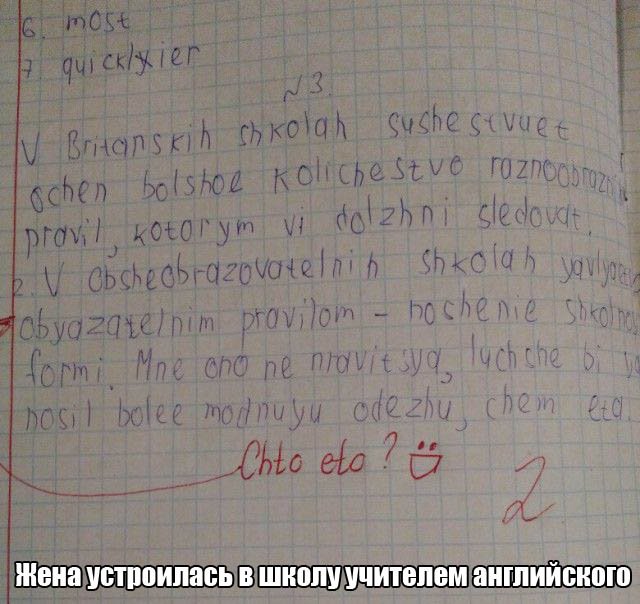 6. most
7 quicklyier
№3.
V Britanskih shkolah sushestvuet
ochen bolshoe kolichestvo raznoobraznih
pravil, kotorym vi dolzhni sledovat.
2. V obsheobrazovatelnih shkolah
obyazatelnim pravilom – noshenie
formi. Mne ono ne nravitsya, luchshe bi ya
nosil bolee modnuyu odezhu, chem eta.
Chto eto?
2
Жена устроилась в школу учителем английского